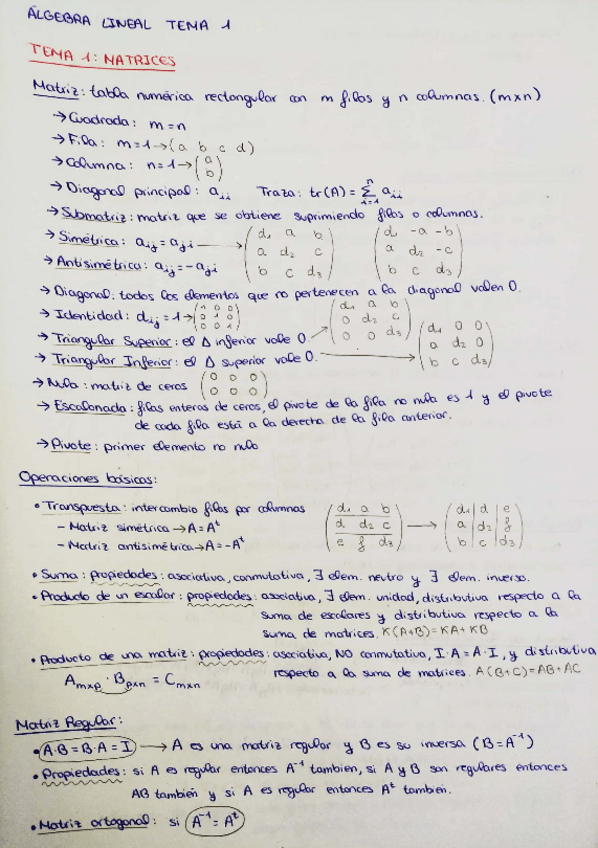 ÁLGEBRA LINEAL TEMA 1
TEMA 1: MATRICES
Matriz: tabla numérica rectangular con m filas y n columnas. (m×n)
→ Cuadrada: m=n
→ Fila: m=1 → (a b c d)
→ Columna: n=1 → (a
b)
→ Diagonal principal: aii Traza: tr(A) = Σ aii
n
i=1
→ Submatriz: matriz que se obtiene suprimiendo filas o columnas.
→ Simétrica: aij = aji → (d1 a b
a d2 c
b c d3)
(d1 -a -b
a d2 -c
b c d3)
→ Antisimétrica: aij = -aji
→ Diagonal: todos los elementos que no pertenecen a la diagonal valen 0.
→ Identidad: dij = 1 → (1 0 0
0 1 0
0 0 1)
→ Triangular Superior: el Δ inferior vale 0. → (d1 a b
0 d2 c
0 0 d3)
→ Triangular Inferior: el Δ superior vale 0. → (d1 0 0
a d2 0
b c d3)
→ Nula: matriz de ceros (0 0 0
0 0 0)
→ Escalonada: filas enteras de ceros, el pivote de la fila no nula es 1 y el pivote
de cada fila está a la derecha de la fila anterior.
→ Pivote: primer elemento no nulo
Operaciones básicas:
• Transpuesta: intercambio filas por columnas
- Matriz simétrica → A = Aᵗ
- Matriz antisimétrica → A = -Aᵗ
(d1 a b
d d2 c
e f d3) → (d1 d e
a d2 f
b c d3)
• Suma: propiedades: asociativa, conmutativa, ∃ elem. neutro y ∃ elem. inverso.
• Producto de un escalar: propiedades: asociativa, ∃ elem. unidad, distributiva respecto a la
suma de escalares y distributiva respecto a la
suma de matrices. K(A+B) = KA + KB
• Producto de una matriz: propiedades: asociativa, NO conmutativa, I·A = A·I, y distributiva
respecto a la suma de matrices. A(B+C) = AB + AC
Amxp · Bpxn = Cmxn
Matriz Regular:
• A·B = B·A = I → A es una matriz regular y B es su inversa (B = A⁻¹)
• Propiedades: si A es regular entonces A⁻¹ tambien, si A y B son regulares entonces
AB también y si A es regular entonces Aᵗ tambien.
• Matriz ortogonal: si A⁻¹ = Aᵗ